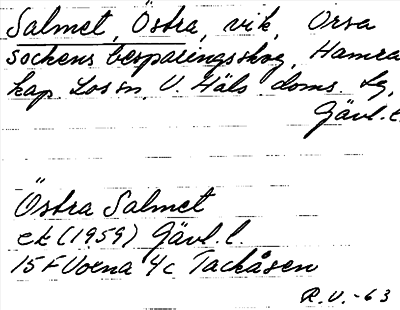 Salmet, Östra, vik, Orsa
sockens besparingsskog, Hamra
kap. Los sn, V. Häls. doms. lg,
Gävl. l.
Östra Salmet
ek (1959) Gävl. l.
15F Voxna 4c Tackåsen
R.V.-63